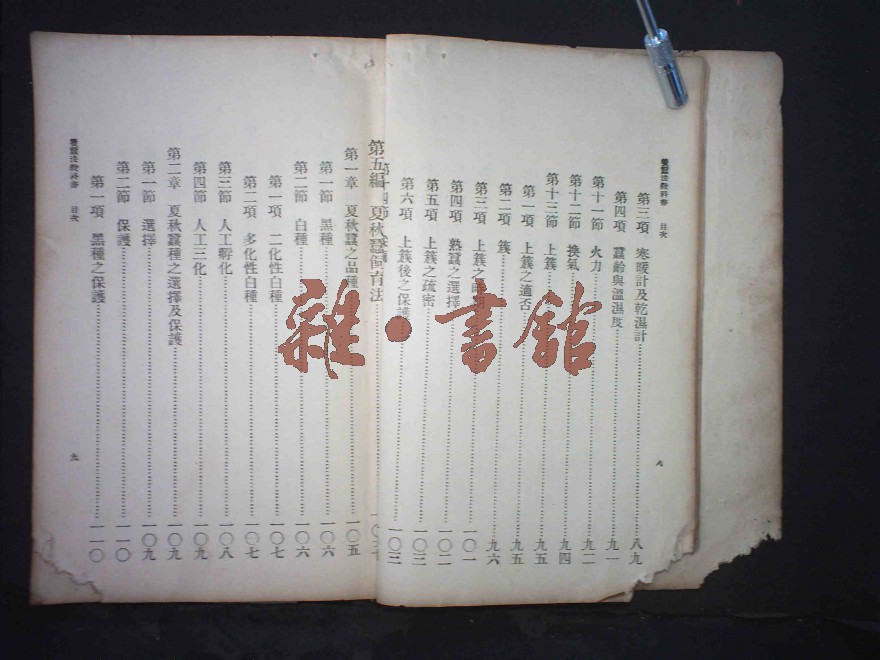 養蠶法教科書 目次
第三項 寒暖計及乾濕計 八九
第四項 蠶齡與溫濕度 九一
第十一節 火力 九二
第十二節 換氣 九四
第十三節 上簇 九五
第一項 上簇之適否 九五
第二項 簇 九六
第三項 上簇之時期 一〇一
第四項 熟蠶之選擇 一〇二
第五項 上簇之疏密 一〇三
第六項 上簇後之保護 一〇三
八
第十四節
第五編 夏秋蠶飼育法
第一章 夏秋蠶之品種 一〇五
第一節 黑種 一〇六
第二節 白種 一〇六
第一項 二化性白種 一〇七
第二項 多化性白種 一〇七
第三節 人工孵化 一〇八
第四節 人工三化 一〇九
第二章 夏秋蠶種之選擇及保護 一〇九
第一節 選擇 一〇九
第二節 保護 一一〇
第一項 黑種之保護 一一〇
養蠶法教科書 目次
九
雜·書館